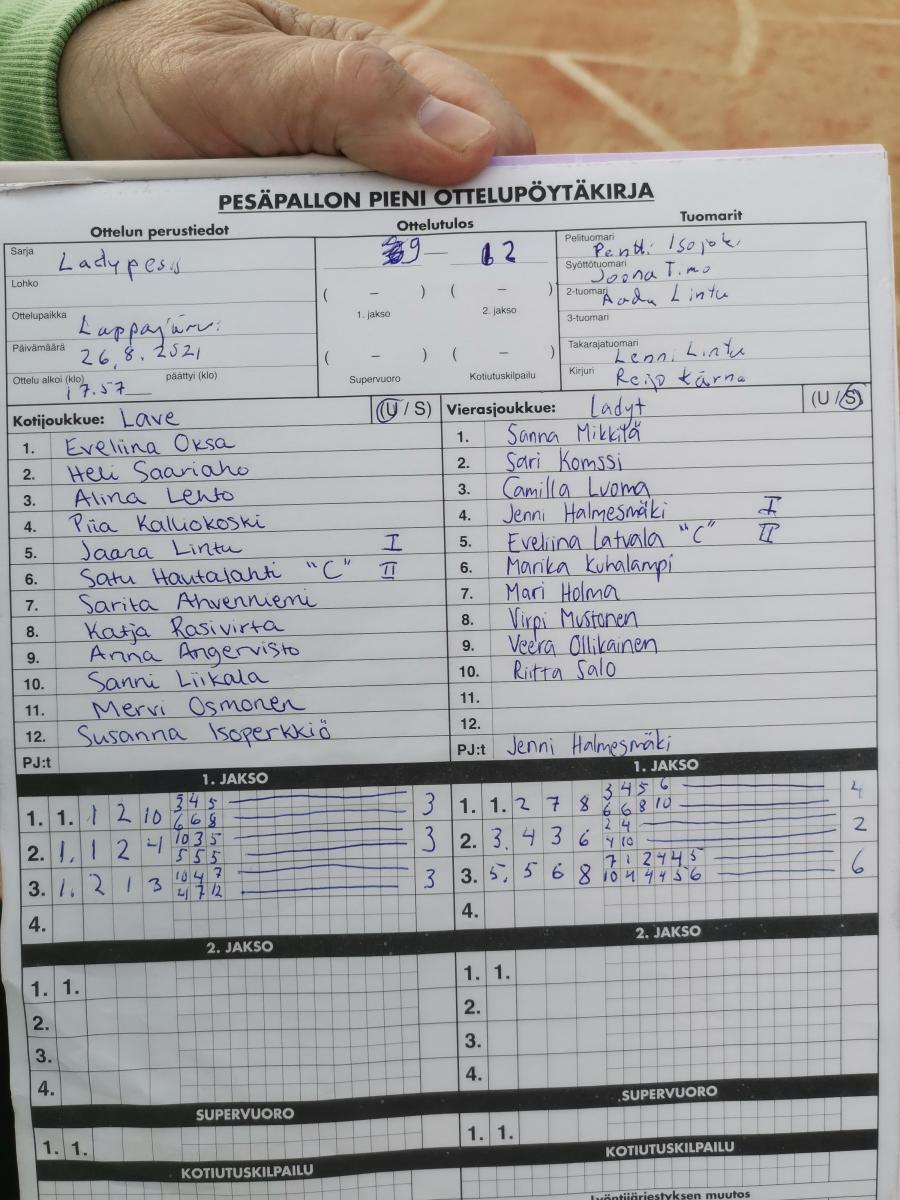 PESÄPALLON PIENI OTTELUPÖYTÄKIRJA
Ottelun perustiedot
Ottelutulos
Tuomarit
Sarja Ladypesis
Lohko
Ottelupaikka Lappajärvi
Päivämäärä 26.8.2021
Ottelu alkoi (klo) 17.57 päättyi (klo)
9 — 12
( – ) ( – )
1. jakso 2. jakso
( – ) ( – )
Supervuoro Kotiutuskilpailu
Pelituomari Pentti Isojoki
Syöttötuomari Joona Timo
2-tuomari Aadu Lintu
3-tuomari
Takarajatuomari Lenni Lintu
Kirjuri Reijo Kärnä
Kotijoukkue: Lave (U / S)
1. Eveliina Oksa
2. Heli Saariaho
3. Alina Lehto
4. Piia Kalliokoski
5. Jaana Lintu I
6. Satu Hautalahti "C" II
7. Sarita Ahvenniemi
8. Katja Rasivirta
9. Anna Angervisto
10. Sanni Liikala
11. Mervi Osmonen
12. Susanna Isoperkkiö
PJ:t
Vierasjoukkue: Ladyt (U / S)
1. Sanna Mikkilä
2. Sari Komssi
3. Camilla Luoma
4. Jenni Halmesmäki I
5. Eveliina Latvala "C" II
6. Marika Kuhalampi
7. Mari Holma
8. Virpi Mustonen
9. Veera Ollikainen
10. Riitta Salo
11.
12.
PJ:t Jenni Halmesmäki
1. JAKSO
3 4 5
1. 1. 1 2 10 3
6 6 8
10 3 5
2. 1. 1 2 4 3
5 5 5
10 4 7
3. 1. 2 1 3 3
4 7 12
4.
2. JAKSO
1. 1.
2.
3.
4.
SUPERVUORO
1. 1.
KOTIUTUSKILPAILU
1. JAKSO
3 4 5 6
1. 1. 2 7 8 4
6 6 8 10
2 4
2. 3. 4 3 6 2
4 10
7 1 2 4 4 5
3. 5. 5 6 8 6
10 4 4 4 5 6
4.
2. JAKSO
1. 1.
2.
3.
4.
SUPERVUORO
1. 1.
KOTIUTUSKILPAILU
Lyöntijärjestyksen muutos